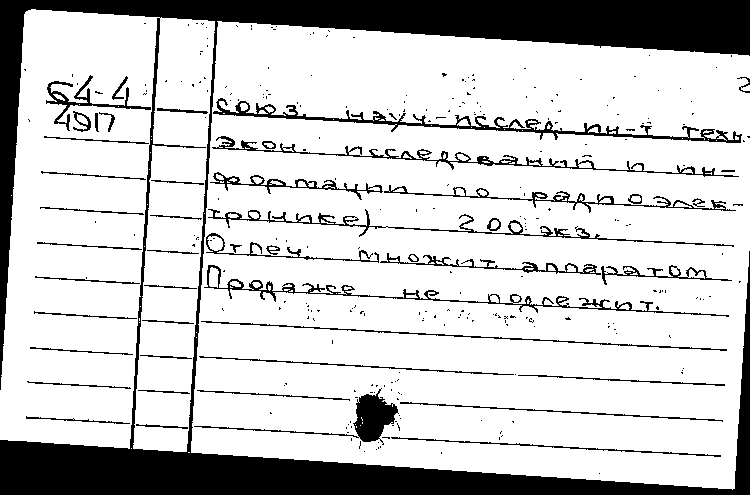 2
64-4
491
союз. науч.-исслед. ин-т техн.-
экон. исследований и ин=
формации по радиоэлек-
тронике). 200 экз.
Отпеч. множит. аппаратом
Продаже не подлежит.